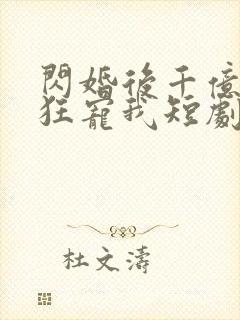 閃婚後千億
狂寵我短劇
杜文濤